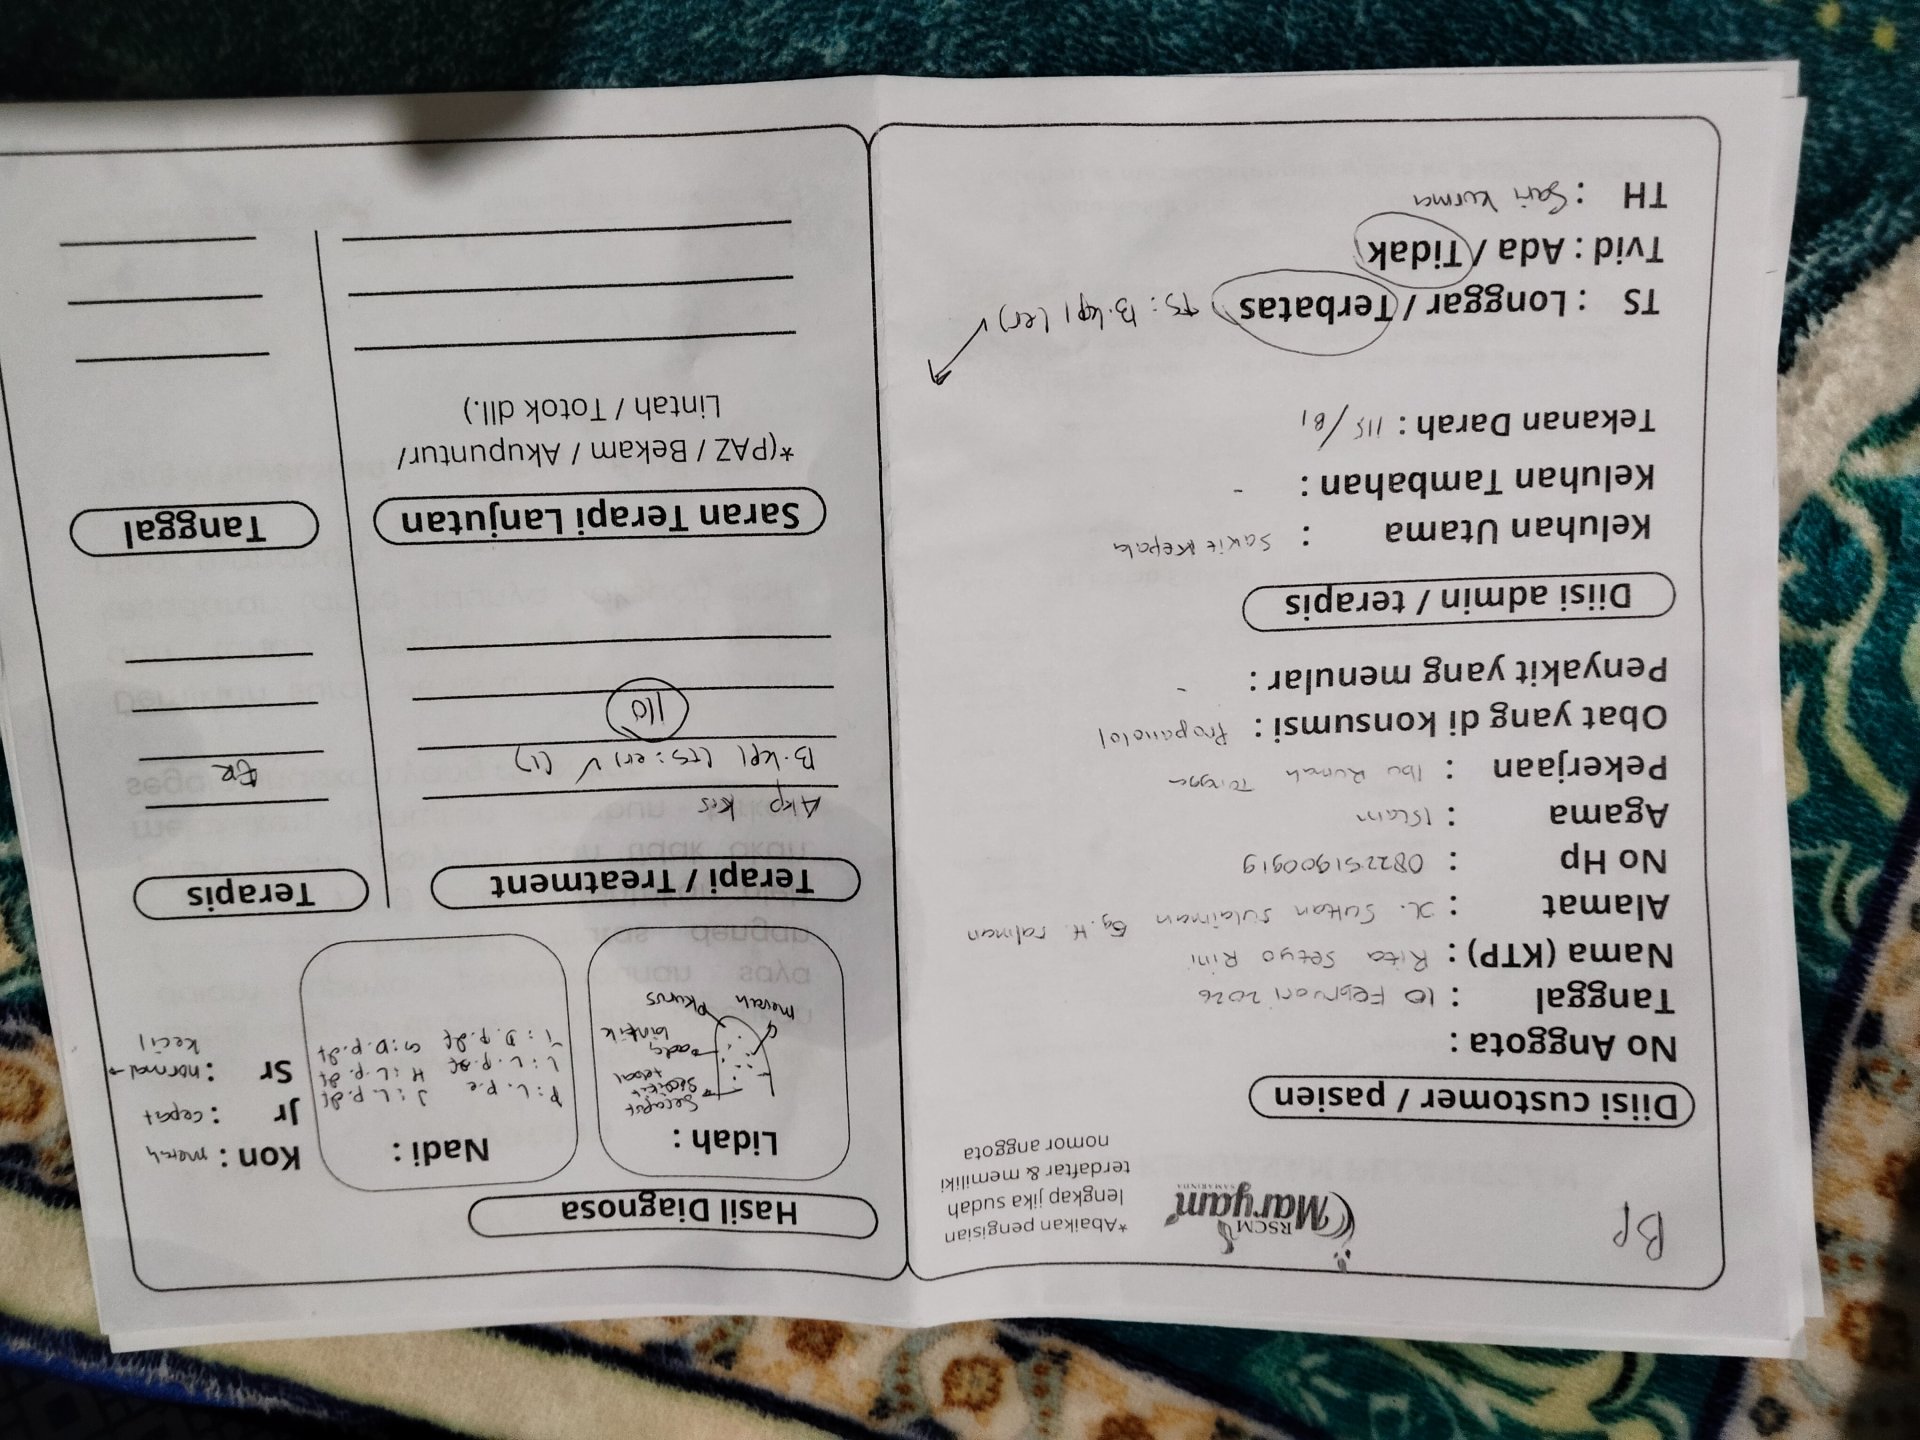 Bp
RSCM
Maryam
SAMARINDA
*Abaikan pengisian
lengkap jika sudah
terdaftar & memiliki
nomor anggota
Diisi customer / pasien
No Anggota :
Tanggal : 10 Februari 2026
Nama (KTP) : Rita Setyo Rini
Alamat : Jl. Sultan Sulaiman Gg. H. rahman
No Hp : 082251900919
Agama : Islam
Pekerjaan : Ibu Rumah Tangga
Obat yang di konsumsi : Propanolol
Penyakit yang menular : -
Diisi admin / terapis
Keluhan Utama : Sakit Kepala
Keluhan Tambahan : -
Tekanan Darah : 115/81
TS : Longgar / Terbatas TS: B.kpl (er) √
Tvid : Ada / Tidak
TH : Sari kurma
Hasil Diagnosa
Lidah :
Selaput
sedikit
tebal
ada
bintik
merah
Pkurus
Nadi :
P : L. P.c J : L. P. df
L : L. P. df H : L. P. df
T : D. P. df G : D. P. df
Kon : merah
Jr : cepat
Sr : normal →
kecil
Terapi / Treatment
Terapis
Akp kes
B.kpl (TS: er) √ (1) ER
110
Saran Terapi Lanjutan
Tanggal
*(PAZ / Bekam / Akupuntur/
Lintah / Totok dll.)